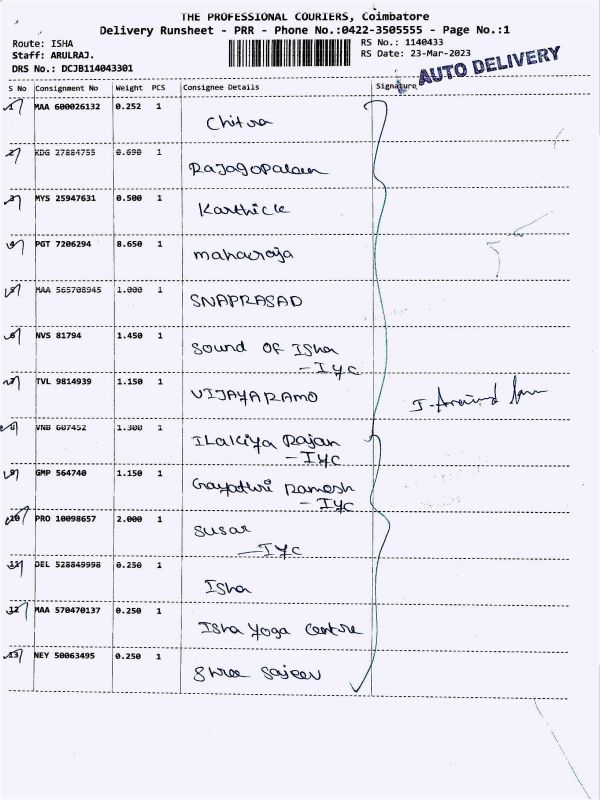 THE PROFESSIONAL COURIERS, Coimbatore
Delivery Runsheet - PRR - Phone No.:0422-3505555 - Page No.:1
Route: ISHA RS No.: 1140433
Staff: ARULRAJ. RS Date: 23-Mar-2023
DRS No.: DCJB114043301
AUTO DELIVERY
S No Consignment No Weight PCS Consignee Details Signature
1 MAA 600026132 0.252 1
Chitra
2 KDG 27884755 0.690 1
Rajagopalan
3 MYS 25947631 0.500 1
Karthick
4 PGT 7206294 8.650 1
maharaja
5 MAA 565708945 1.000 1
SNAPRASAD
6 NVS 81794 1.450 1
Sound OF Isha
- IYC
7 TVL 9814939 1.150 1
VIJAYARAMO
8 VNB 607452 1.300 1
ILakiya Rajan
- IYC
9 GMP 564740 1.150 1
Gayathri Ramesh
- IYC
10 PRO 10098657 2.000 1
Susar
- IYC
11 DEL 528849998 0.250 1
Isha
12 MAA 570470137 0.250 1
Isha Yoga Centre
13 NEY 50063495 0.250 1
Shree Sajeev